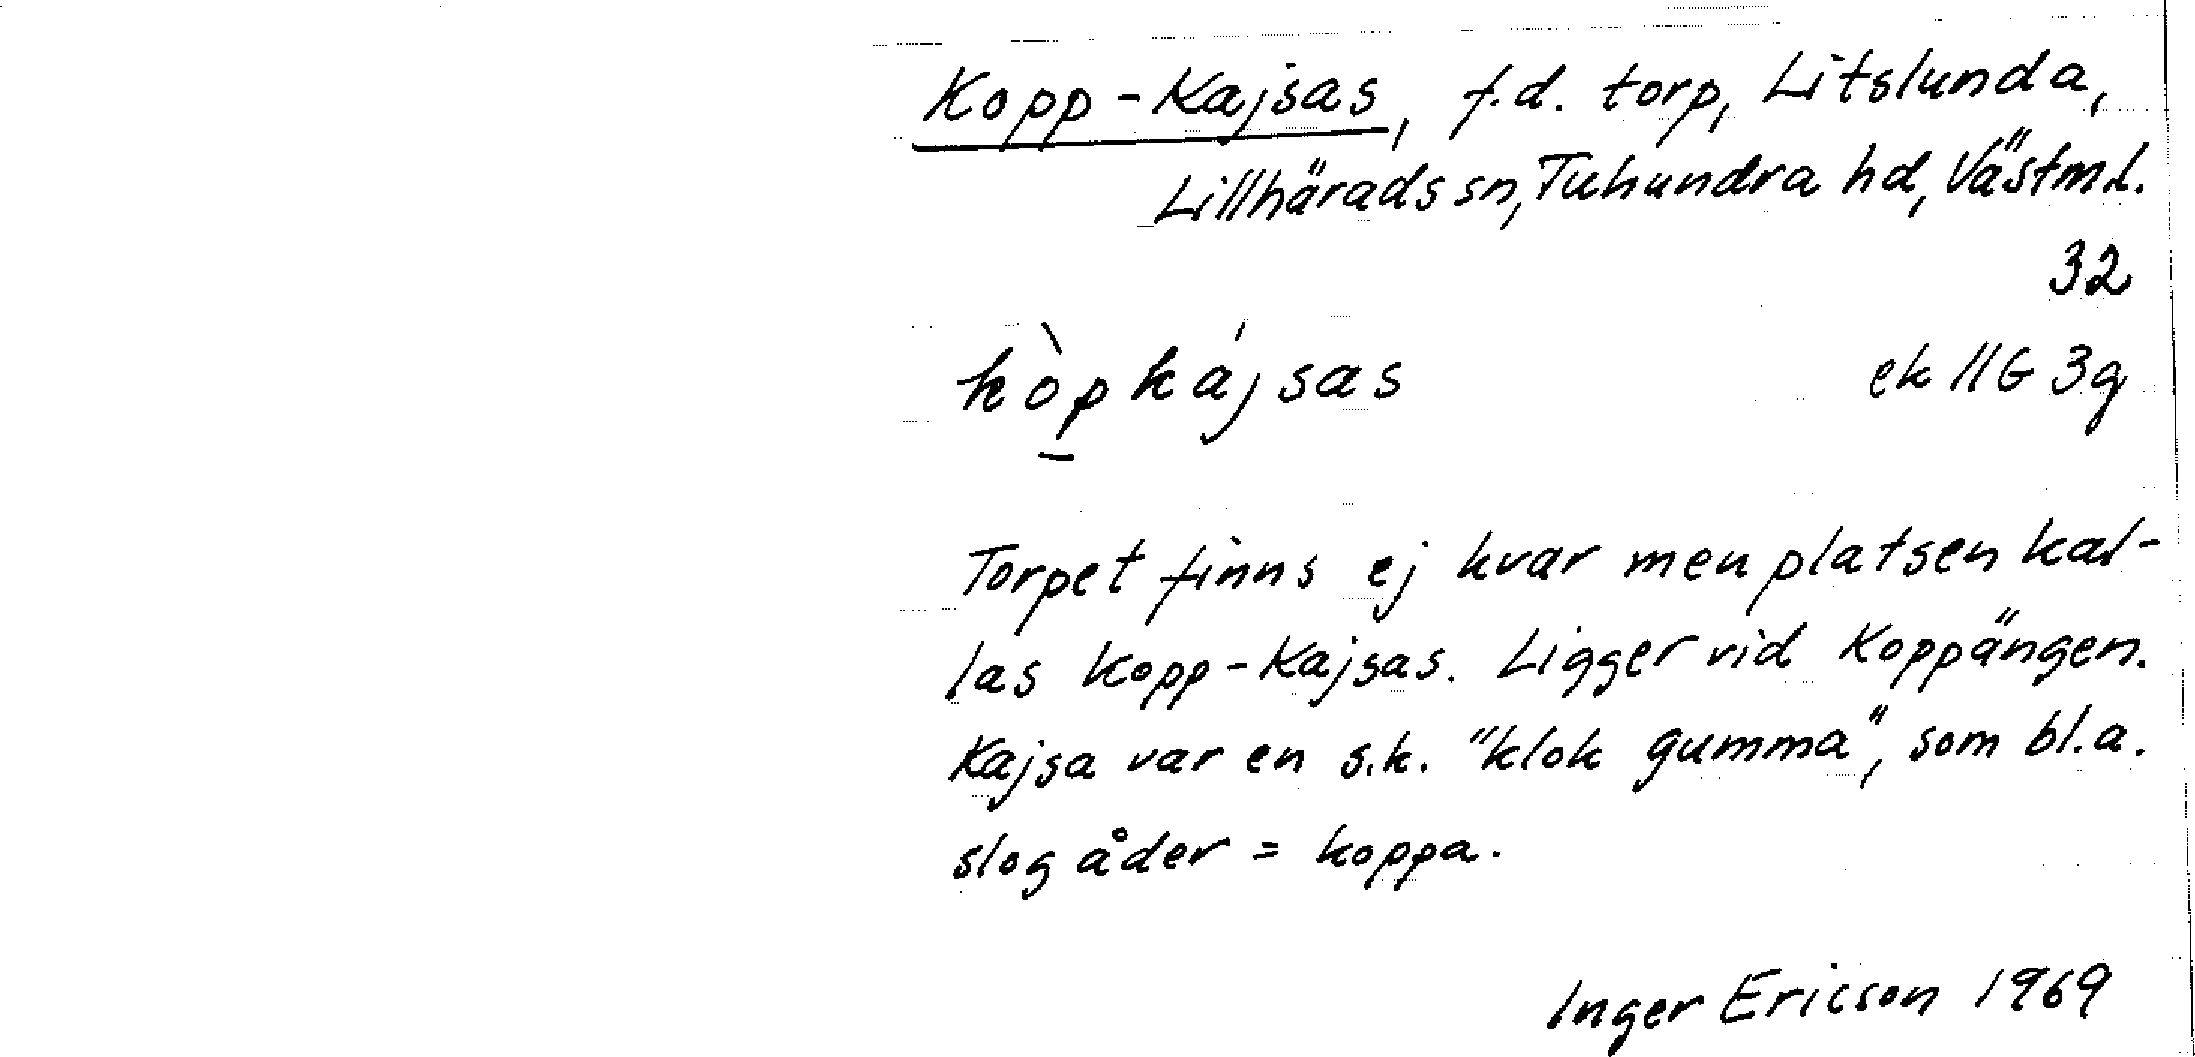 Kopp-Kajsas, f.d. torp, Litslunda,
Lillhärads sn, Tuhundra hd, Västml.
32
kòp̲kájsas
ek 11G 3g
Torpet finns ej kvar men platsen kal-
las Kopp-Kajsas. Ligger vid Koppängen.
Kajsa var en s.k. "klok gumma", som bl.a.
slog åder = koppa.
Inger Ericson 1969